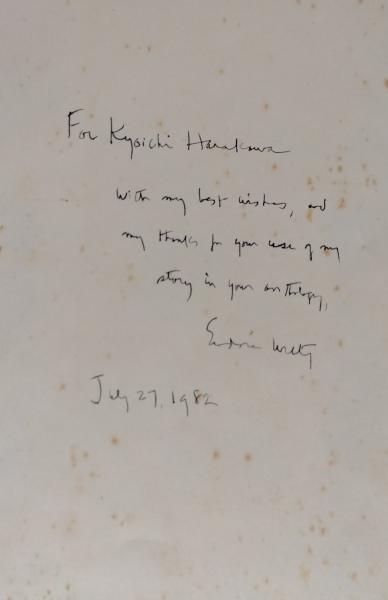 For Kyoichi Harakawa
with my best wishes, and
my thanks for your use of my
story in your anthology,
Eudora Welty
July 27, 1982